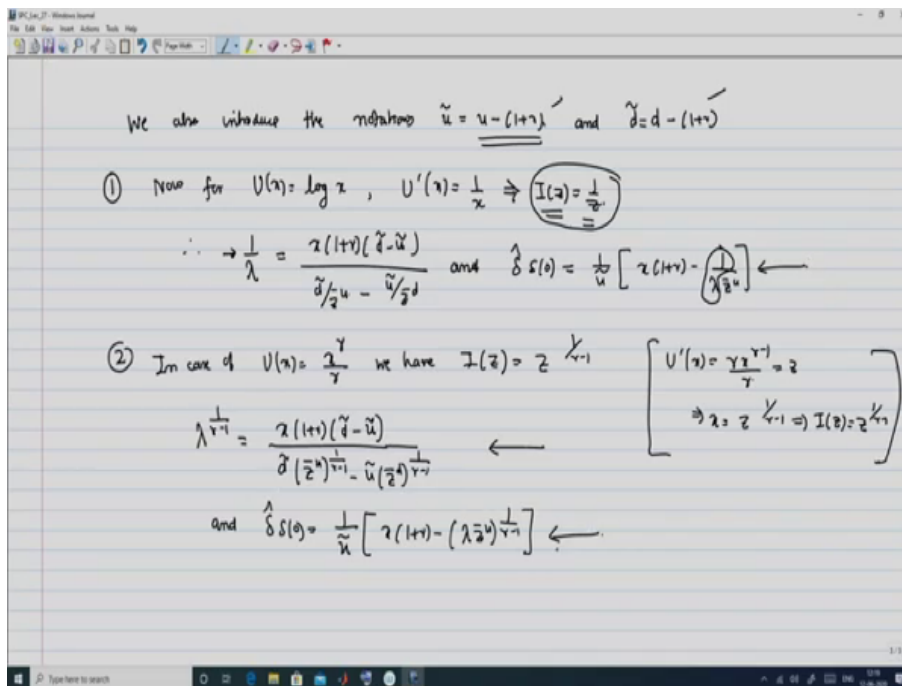 SPC_Lec_27 - Windows Journal
File Edit View Insert Actions Tools Help
Page Width
We also introduce the notations ũ = u - (1+r) and d̃ = d - (1+r)
① Now for U(x) = log x , U'(x) = 1/x ⇒ I(z) = 1/z
∴ → 1/λ = x(1+r)(d̃-ũ) / (d̃/z̄^u - ũ/z̄^d) and δ̂ S(0) = 1/ũ [ x(1+r) - 1/(λz̄^u) ] ←
② In case of U(x) = x^γ/γ we have I(z) = z^(1/γ-1) [ U'(x) = γx^(γ-1)/γ = z
⇒ x = z^(1/γ-1) ⇒ I(z) = z^(1/γ-1) ]
λ^(1/γ-1) = x(1+r)(d̃-ũ) / (d̃(z̄^u)^(1/γ-1) - ũ(z̄^d)^(1/γ-1)) ←
and δ̂ S(0) = 1/ũ [ x(1+r) - (λz̄^u)^(1/γ-1) ] ←
1/1
Type here to search
ENG